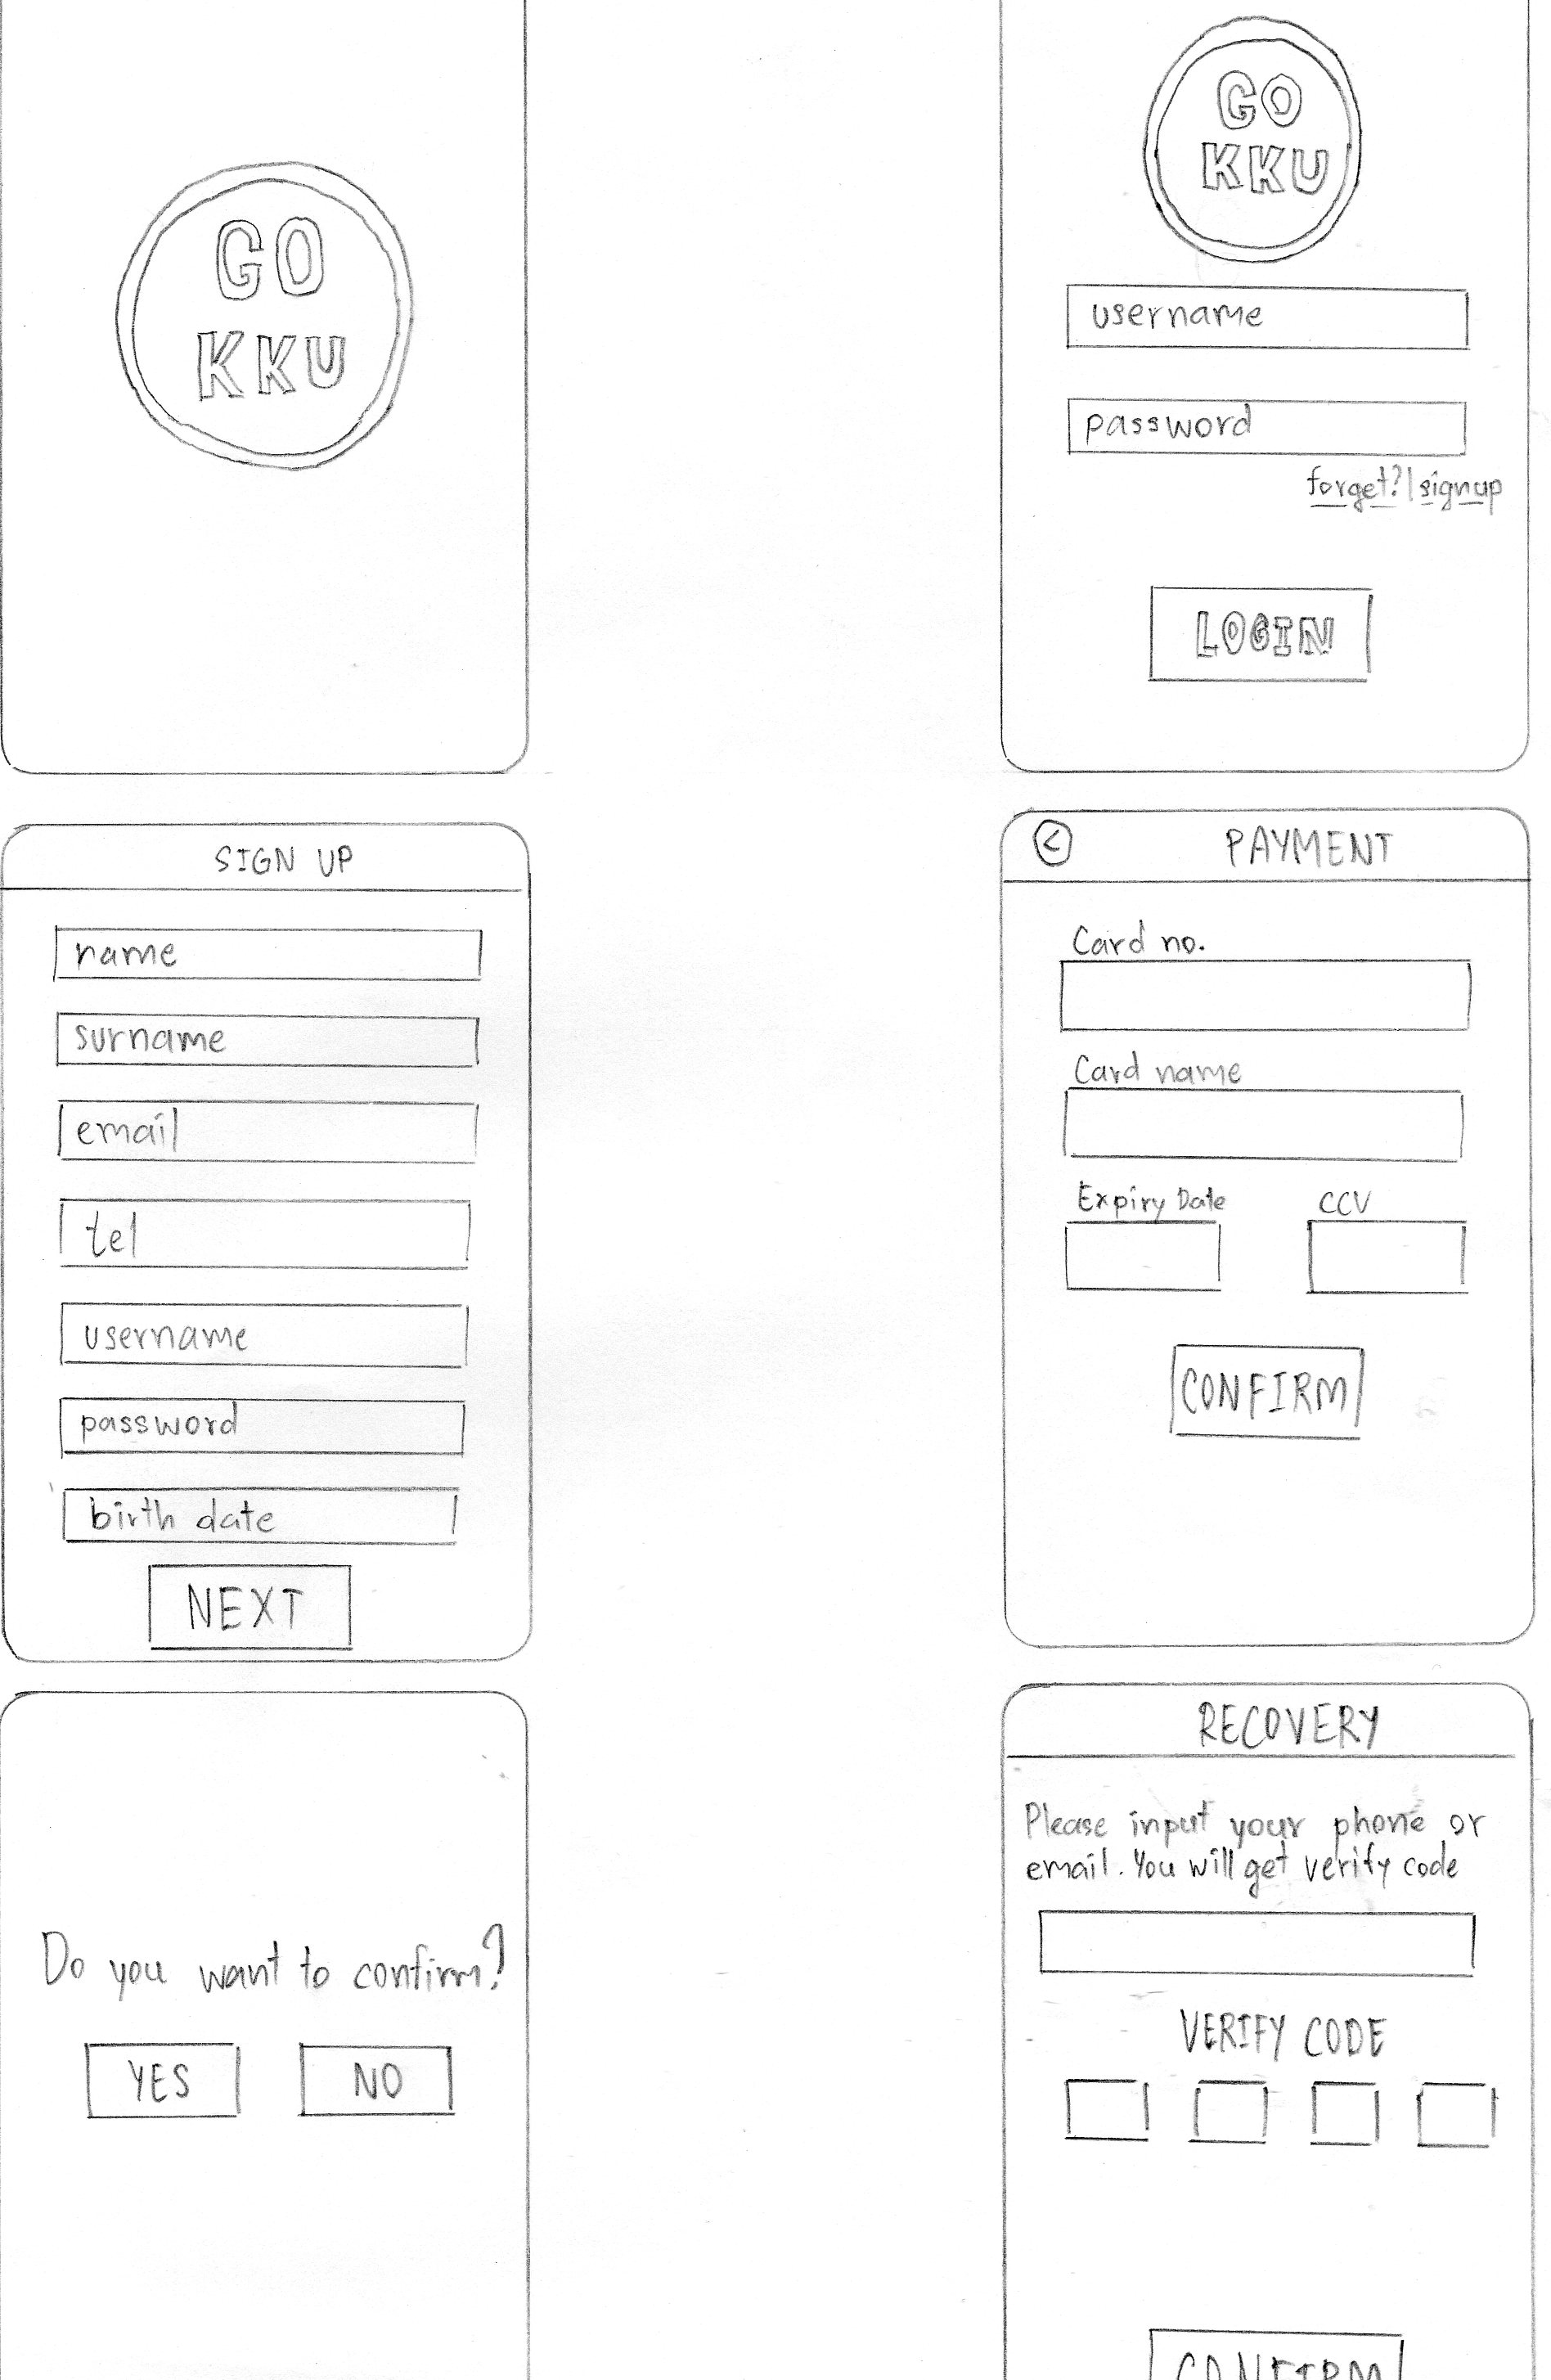 GO
KKU
GO
KKU
username
password
forget? | signup
LOGIN
SIGN UP
name
surname
email
tel
username
password
birth date
NEXT
<
PAYMENT
Card no.
Card name
Expiry Date
CCV
CONFIRM
Do you want to confirm?
YES
NO
RECOVERY
Please input your phone or
email. You will get verify code
VERIFY CODE
CONFIRM